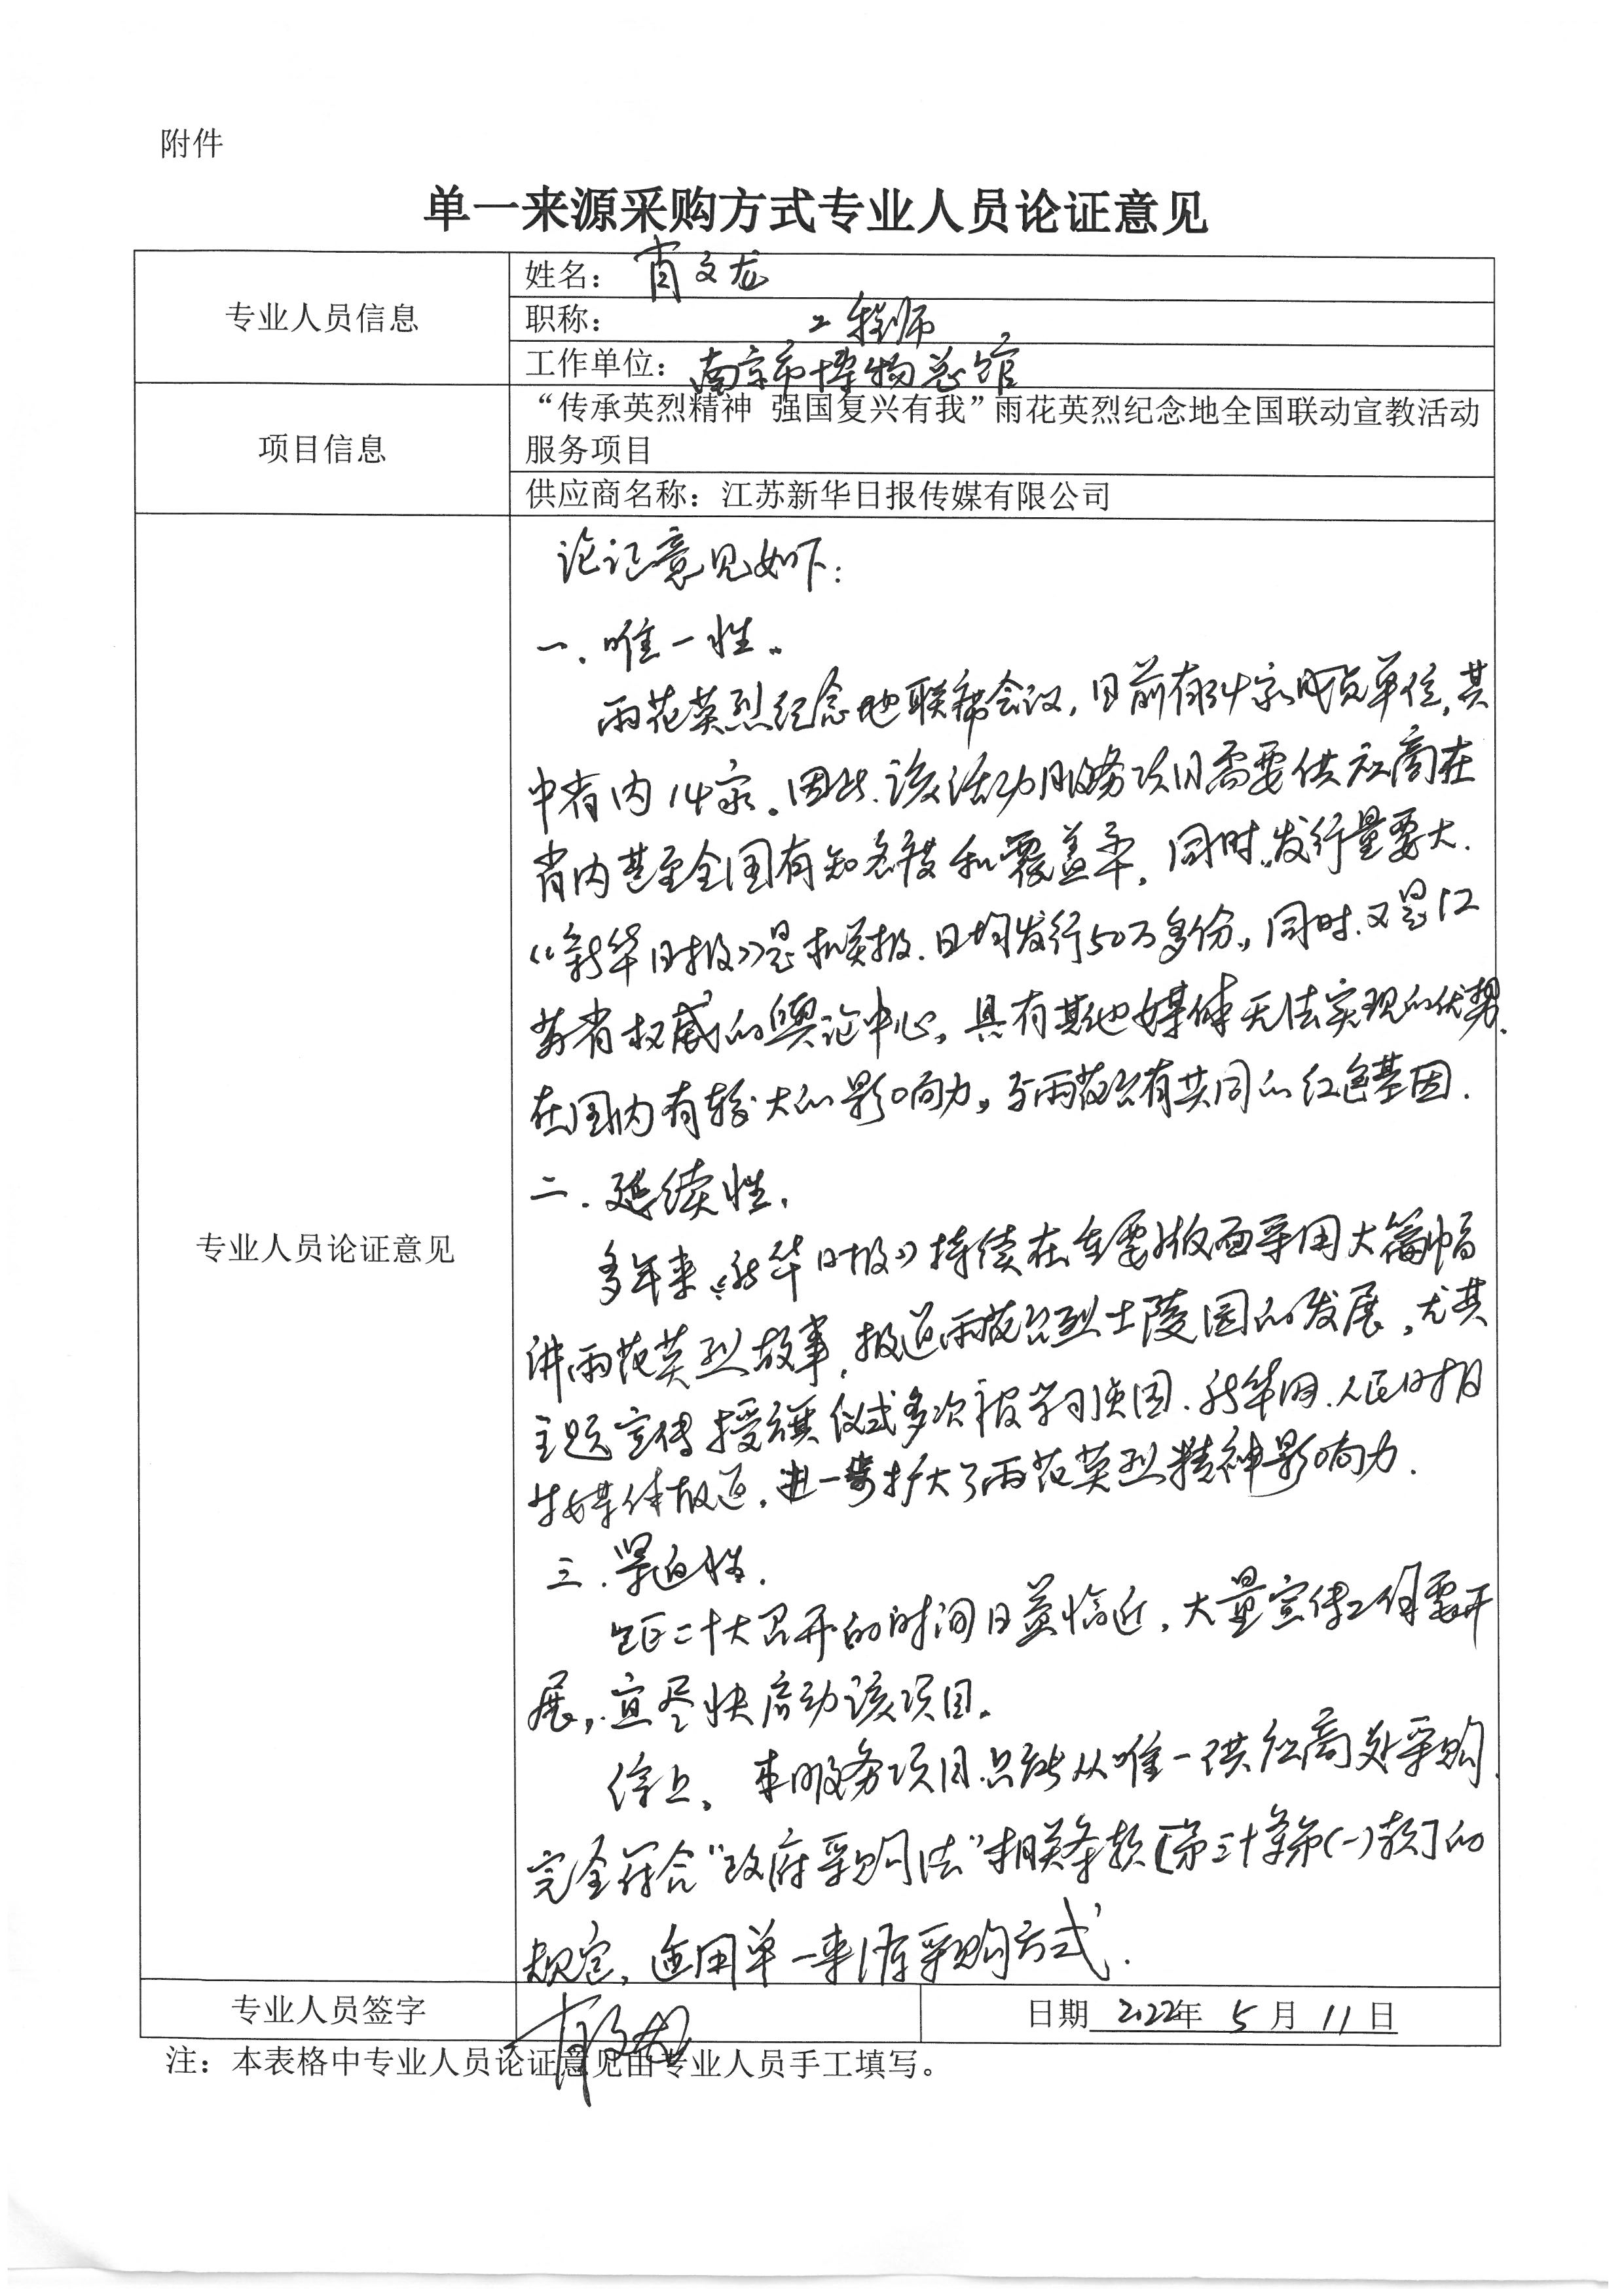 附件
单一来源采购方式专业人员论证意见
专业人员信息
姓名：肖文龙
职称：工程师
工作单位：南京市博物总馆
项目信息
“传承英烈精神 强国复兴有我”雨花英烈纪念地全国联动宣教活动
服务项目
供应商名称：江苏新华日报传媒有限公司
专业人员论证意见
论证意见如下：
一．唯一性。
雨花英烈纪念地联席会议，目前有34家成员单位，其
中省内14家。因此．该活动服务项目需要供应商在
省内甚至全国有知名度和覆盖率．同时，发行量要大．
《新华日报》是机关报．日均发行50万多份，同时．又是江
苏省权威的舆论中心，具有其他媒体无法实现的优势．
在国内有较大的影响力，与雨花台有共同的红色基因．
二．延续性．
多年来《新华日报》持续在重要版面采用大篇幅
讲雨花英烈故事，报道雨花台烈士陵园的发展，尤其
主题宣传授旗仪式多次被学习强国．新华网．人民日报
等媒体报道，进一步扩大了雨花英烈精神影响力．
三．紧迫性．
二十大召开的时间日益临近，大量宣传工作要开
展，宜尽快启动该项目。
综上，本服务项目只能从唯一供应商处采购．
完全符合“政府采购法”相关条款［第三十一条第(一)款］的
规定，适用单一来源采购方式．
专业人员签字
肖文龙
日期 2022年 5 月 11 日
注：本表格中专业人员论证意见由专业人员手工填写。